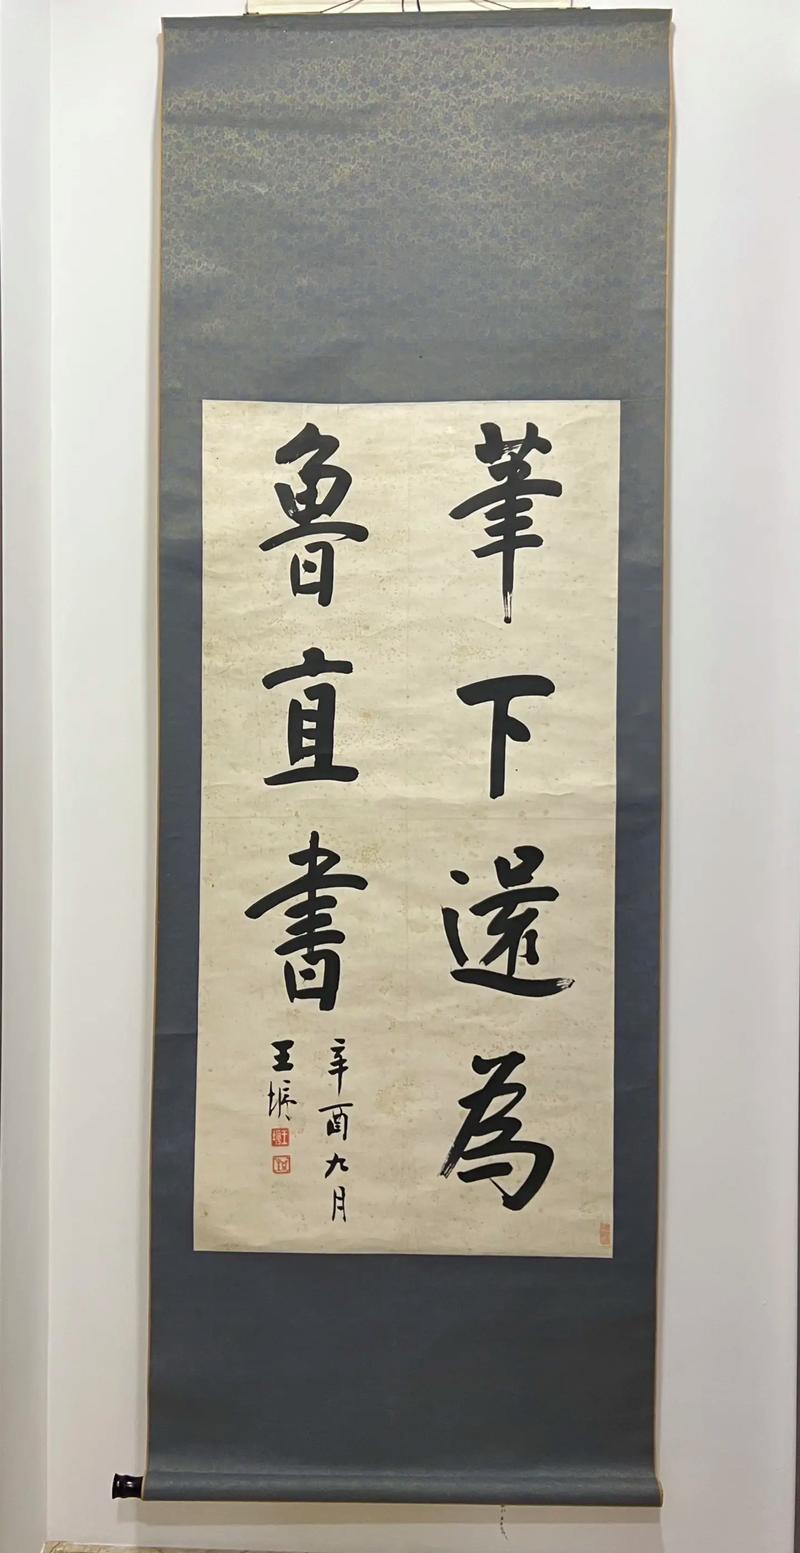 筆下還為
魯直書
辛酉九月
王墳